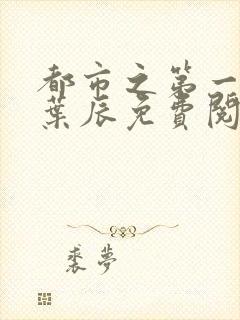 都市之第一
葉辰免費閱
裘夢